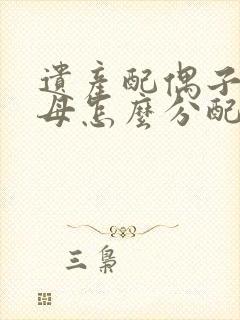 遺產配偶子
母怎麼分配
三梟